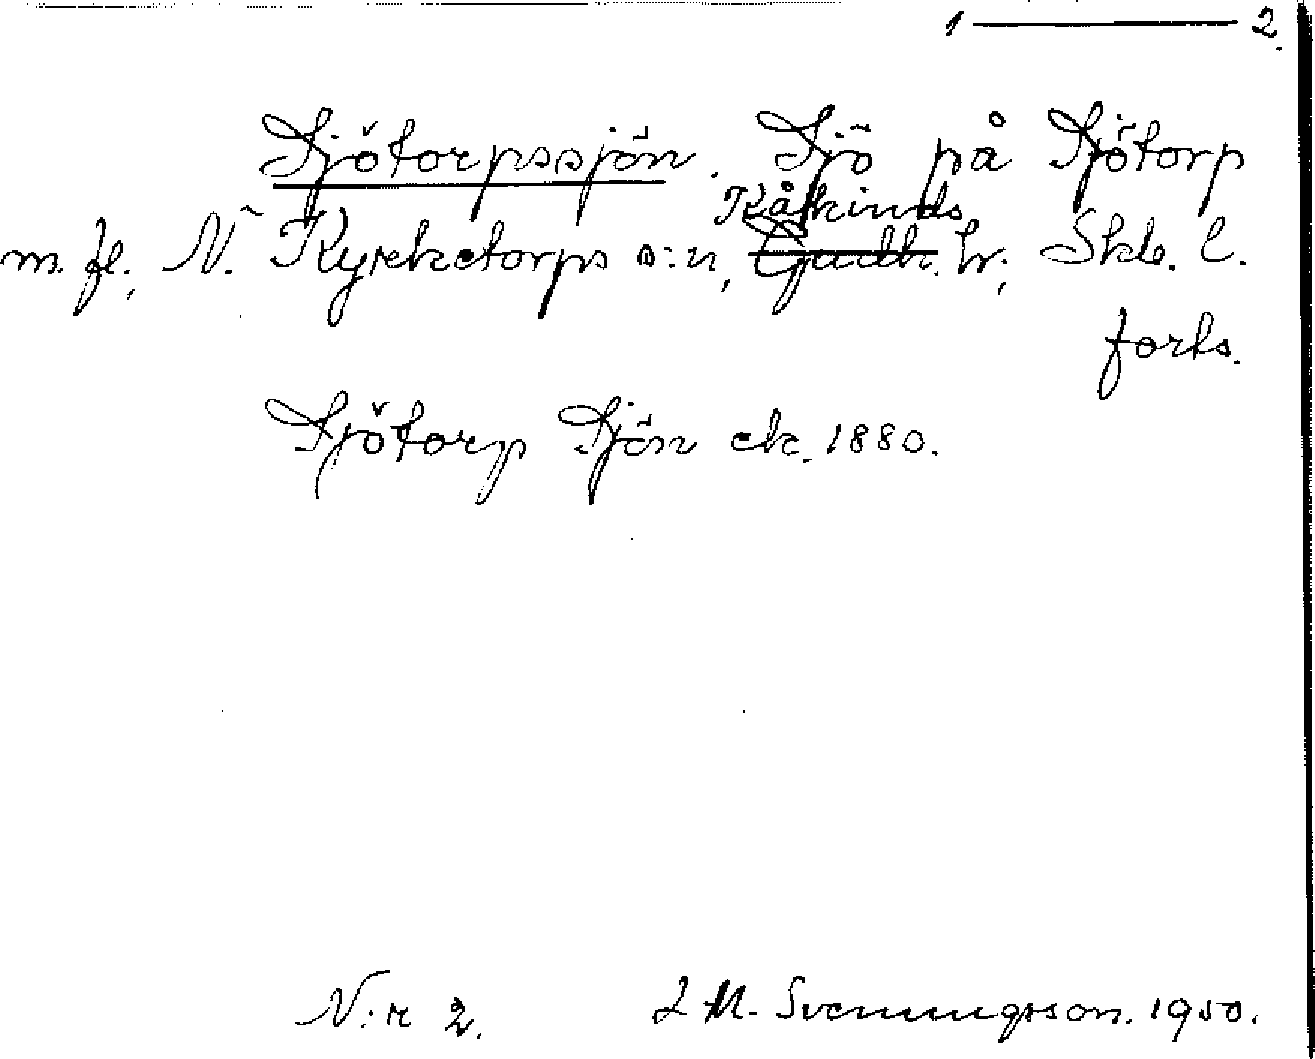 1 ——— 2.
Sjötorpssjön. Sjö på Sjötorp
Kåkinds
m. fl., N. Kyrketorps s:n, Gudh. hr; Skb. l.
forts.
Sjötorp Sjön ek. 1880.
N:r 2. L M. Svenungsson. 1950.